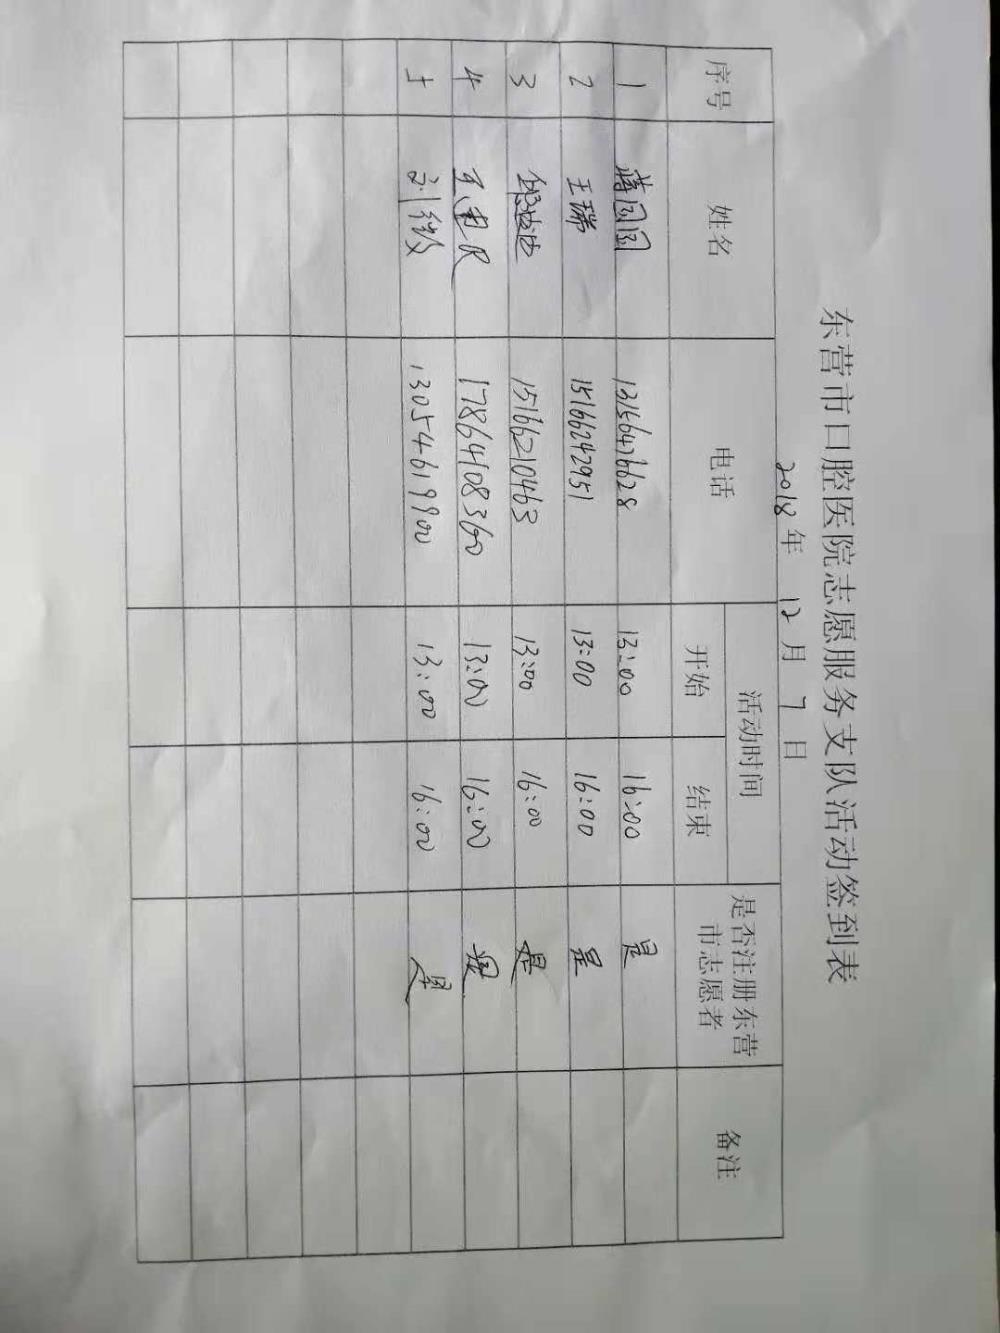 东营市口腔医院志愿服务支队活动签到表
2018年 12月 7日
序号 姓名 电话 活动时间 是否注册东营市志愿者 备注
开始 结束
1 蒋园园 13156476628 13:00 16:00 是
2 王瑞 15166242951 13:00 16:00 是
3 15166210463 13:00 16:00 是
4 17864108360 13:00 16:00 是
5 刘 13054619900 13:00 16:00 是